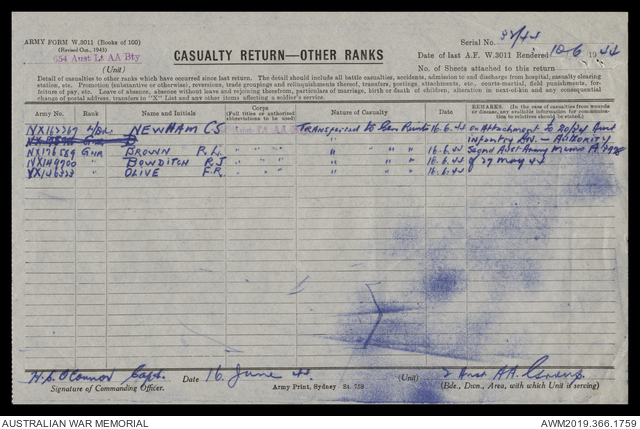 Serial No. 38/44
ARMY FORM W.3011 (Books of 100)
(Revised Oct., 1943)
654 Aust Lt AA Bty
(Unit)
CASUALTY RETURN—OTHER RANKS
Date of last A.F. W.3011 Rendered 10-6 1944
No. of Sheets attached to this return
Detail of casualties to other ranks which have occurred since last return. The detail should include all battle casualties, accidents, admission to and discharge from hospital, casualty clearing
station, etc. Promotion (substantive or otherwise), reversions, trade groupings and relinquishments thereof, transfers, postings, attachments, etc., courts-martial, field punishments, for-
feiture of pay, etc. Leave of absence, absence without leave and rejoining therefrom, particulars of marriage, birth or death of children, alteration in next-of-kin and any consequential
change of postal address, transfers to "X" List and any other items affecting a soldier's service.
Army No. Rank Name and Initials Corps (Full titles or authorised abbreviations to be used) Nature of Casualty Date REMARKS. (In the case of casualties from wounds or disease, any available information for communication to relatives should be inserted)
NX163367 L/Bdr NEWHAM C S Transferred to Gen Runts 16.6.44 on Attachment to Aust
Infantry Authority
NX176589 Gnr BROWN R. L. " " " 16.6.44 Aust Army Memo
NX149900 " BOWDITCH R. J " " " 16.6.44 of 27 May 44
VX146333 " OLIVE F. R. " " " 16.6.44
H. C. O'Connor Capt. Date 16 June 44 (Unit) 2 Aust AA. Group
Signature of Commanding Officer. Army Print, Sydney St. 758 (Bde., Dvn., Area, with which Unit is serving)
AUSTRALIAN WAR MEMORIAL AWM2019.366.1759